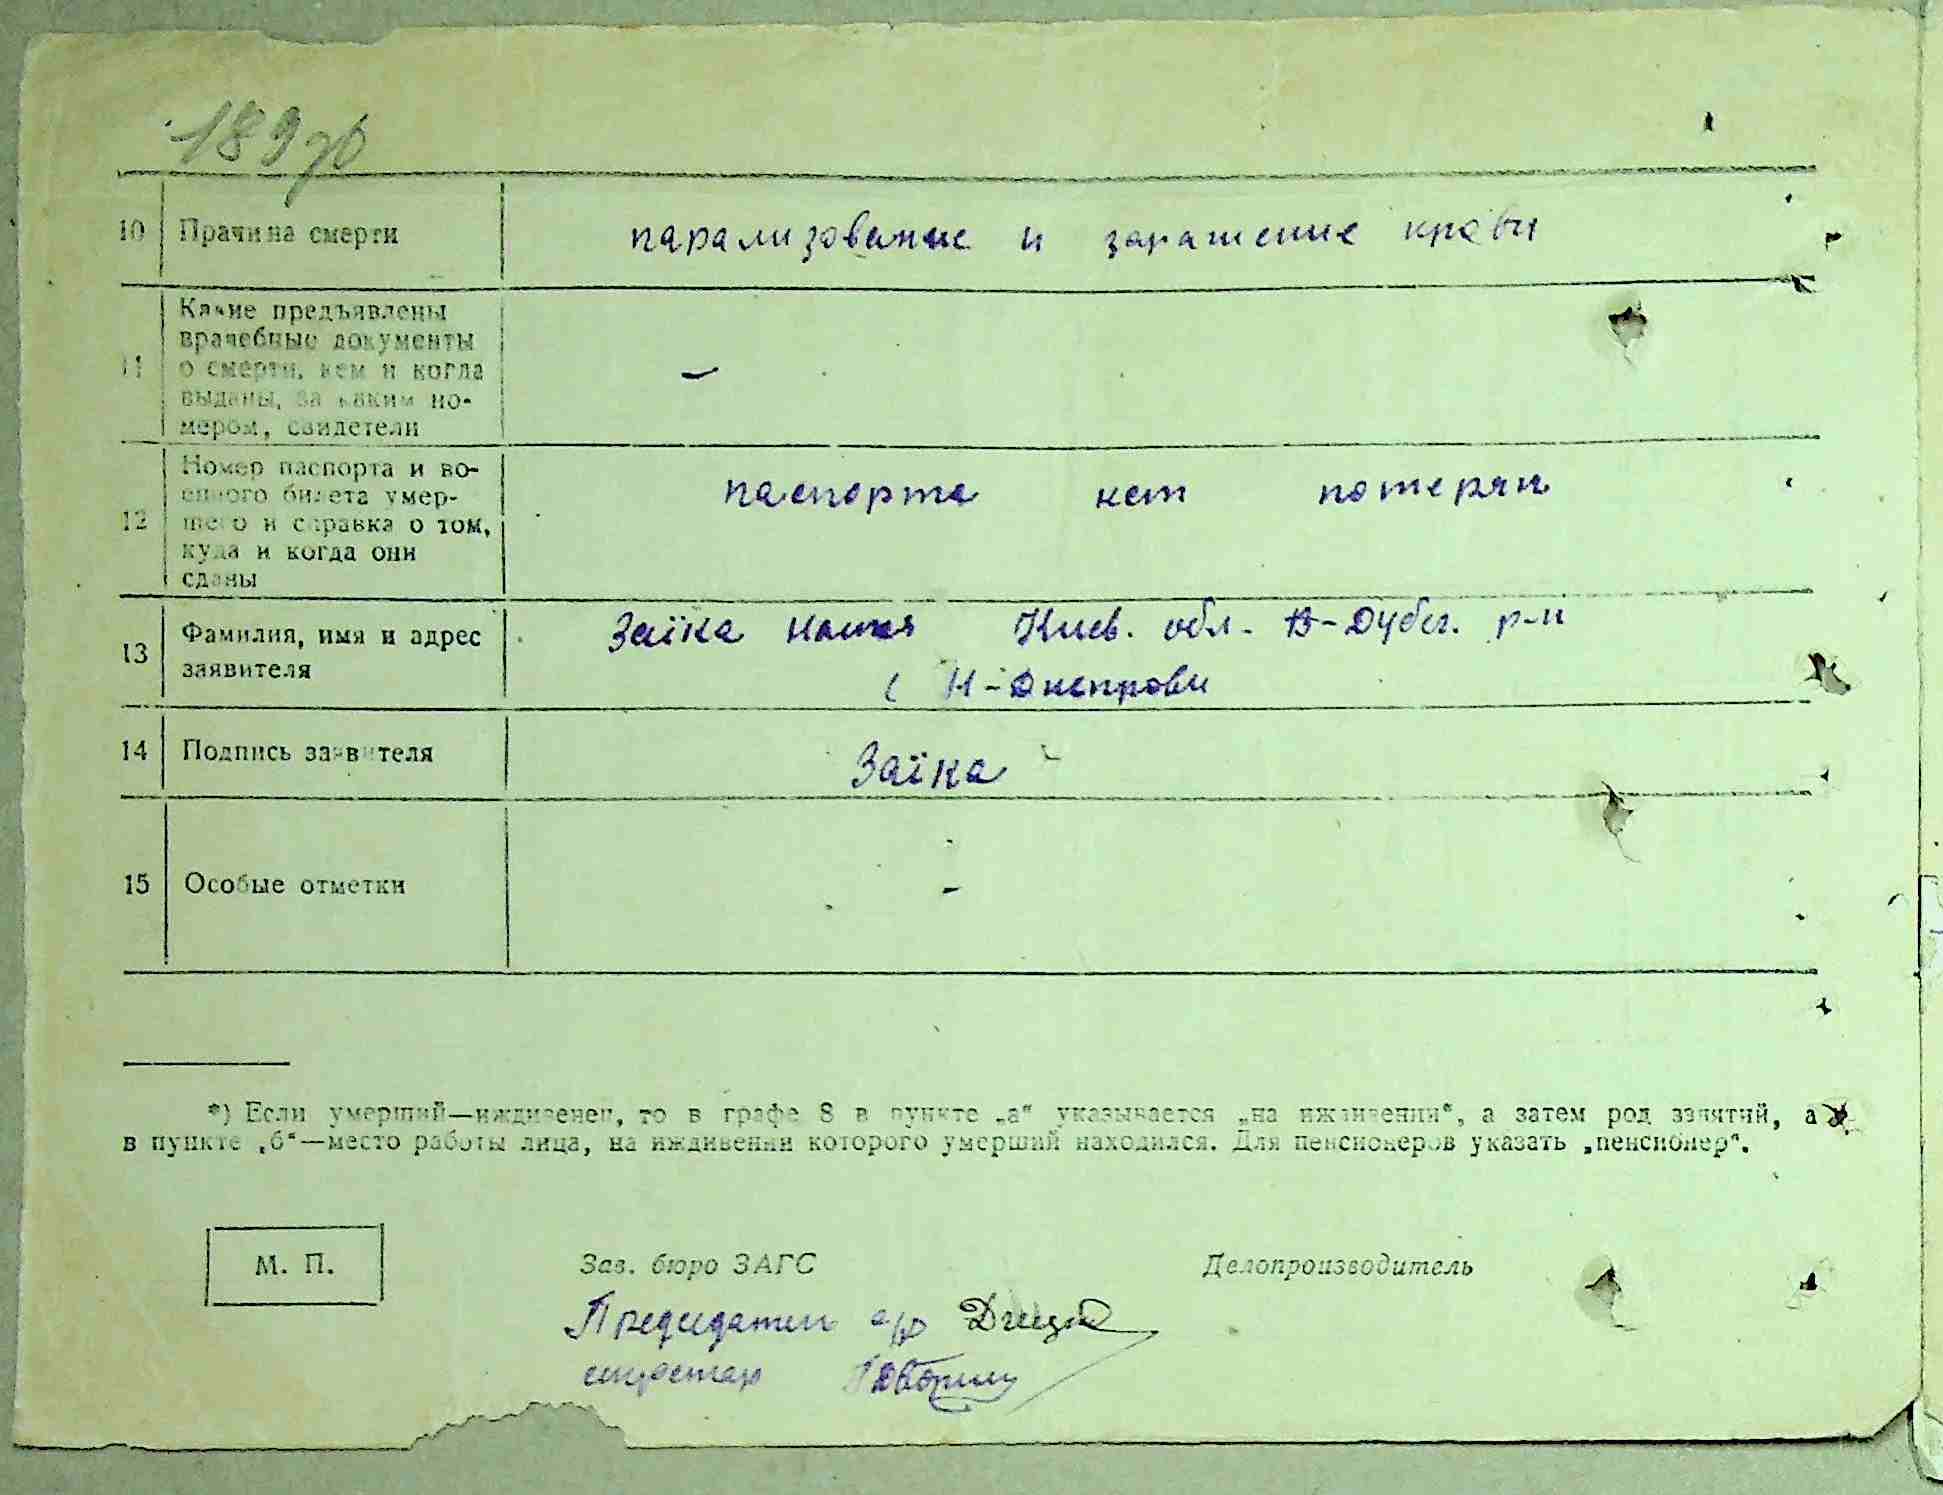 189
10 Причина смерти парализование и заражение крови
11 Какие предъявлены
врачебные документы
о смерти, кем и когда
выданы, за каким но-
мером, свидетели
–
12 Номер паспорта и во-
енного билета умер-
шего и справка о том,
куда и когда они
сданы
паспорта нет потерян
13 Фамилия, имя и адрес
заявителя
Заїка Киев. обл. В-Дубеч. р-н
с Н-Днепрови
14 Подпись заявителя Заїка
15 Особые отметки –
*) Если умерший—иждивенец, то в графе 8 в пункте „а“ указывается „на иждивении“, а затем род занятий, а
в пункте „б“—место работы лица, на иждивении которого умерший находился. Для пенсионеров указать „пенсионер“.
М. П. Зав. бюро ЗАГС Делопроизводитель
Председатель с/р
секретар